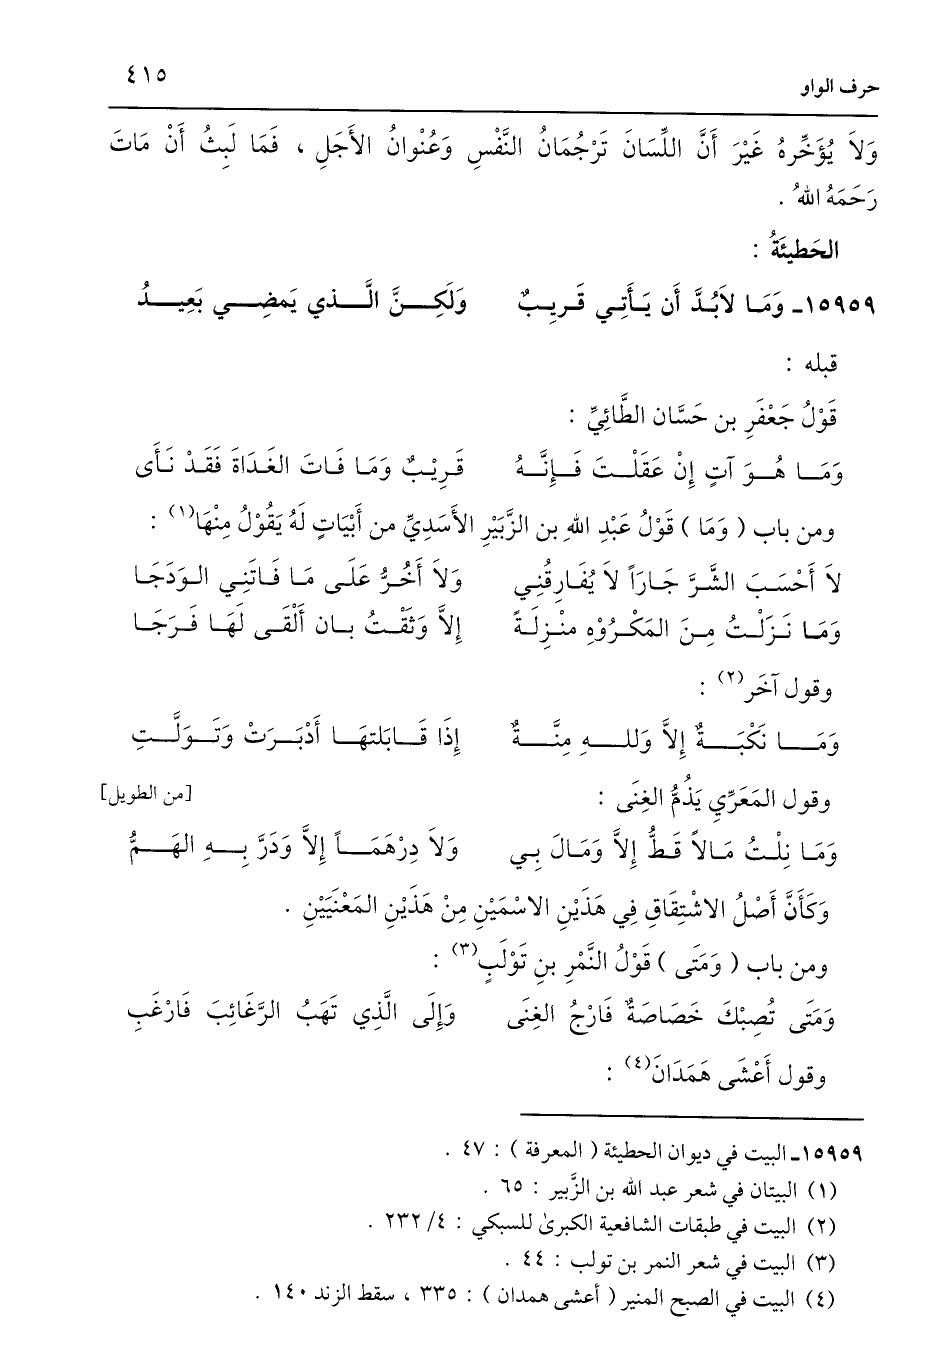 حرف الواو ٤١٥
وَلاَ يُؤَخِّرهُ غَيْرَ أَنَّ اللِّسَانَ تَرْجُمَانُ النَّفْسِ وَعُنْوانُ الأَجَلِ ، فَمَا لَبِثُ أَنْ مَاتَ
رَحَمَهُ اللهُ .
الحَطيئَةُ :
١٥٩٥٩ـ وَمَا لاَبُدَّ أَن يَأَتِي قَرِيبٌ وَلَكِنَّ الَّذي يَمضِي بَعِيدُ
قبله :
قَوْلُ جَعْفَرِ بن حَسَّان الطَّائِيِّ :
وَمَا هُوَ آتٍ إِنْ عَقَلْتَ فَإِنَّهُ قَرِيْبٌ وَمَا فَاتَ الغَدَاةَ فَقَدْ نَأَى
ومن باب ( وَمَا ) قَوْلُ عَبْدِ اللهِ بن الزَّبَيْرِ الأَسَدِيِّ من أَبْيَاتٍ لَهُ يَقُوْلُ مِنْهَا(١) :
لاَ أَحْسَبَ الشَّرَّ جَارَاً لاَ يُفَارِقُنِي وَلاَ أَحُرُّ عَلَى مَا فَاتَنِي الوَدَجَا
وَمَا نَزَلْتُ مِنَ المَكْرُوْهِ مَنْزِلَةً إِلاَّ وَثَقْتُ بان أَلْقَى لَهَا فَرَجَا
وقول آخَر(٢) :
وَمَا نَكْبَةٌ إِلاَّ وَللهِ مِنَّةٌ إِذَا قَابَلتهَا أَدْبَرَتْ وَتَوَلَّتِ
وقول المَعَرِّي يَذُمُّ الغِنَى : [من الطويل]
وَمَا نِلْتُ مَالاً قَطُّ إِلاَّ وَمَالَ بِي وَلاَ دِرْهَمَاً إِلاَّ وَدَرَّ بِهِ الهَمُّ
وَكَأَنَّ أَصْلُ الاشْتِقَاقِ فِي هَذَيْنِ الاسْمَيْنِ مِنْ هَذَيْنِ المَعْنَيَيْنِ .
ومن باب ( وَمَتَى ) قَوْلُ النَّمْرِ بنِ تَوْلَبٍ(٣) :
وَمَتَى تُصِبْكَ خَصَاصَةٌ فَارْجُ الغِنَى وَإِلَى الَّذِي تَهَبُ الرَّغَائِبَ فَارْغَبِ
وقول أَعْشَى هَمَدَانَ(٤) :
١٥٩٥٩ـ البيت في ديوان الحطيئة ( المعرفة ) : ٤٧ .
(١) البيتان في شعر عبد الله بن الزَّبير : ٦٥ .
(٢) البيت في طبقات الشافعية الكبرىٰ للسبكي : ٤/ ٢٣٢ .
(٣) البيت في شعر النمر بن تولب : ٤٤ .
(٤) البيت في الصبح المنير ( أعشى همدان ) : ٣٣٥ ، سقط الزند ١٤٠ .